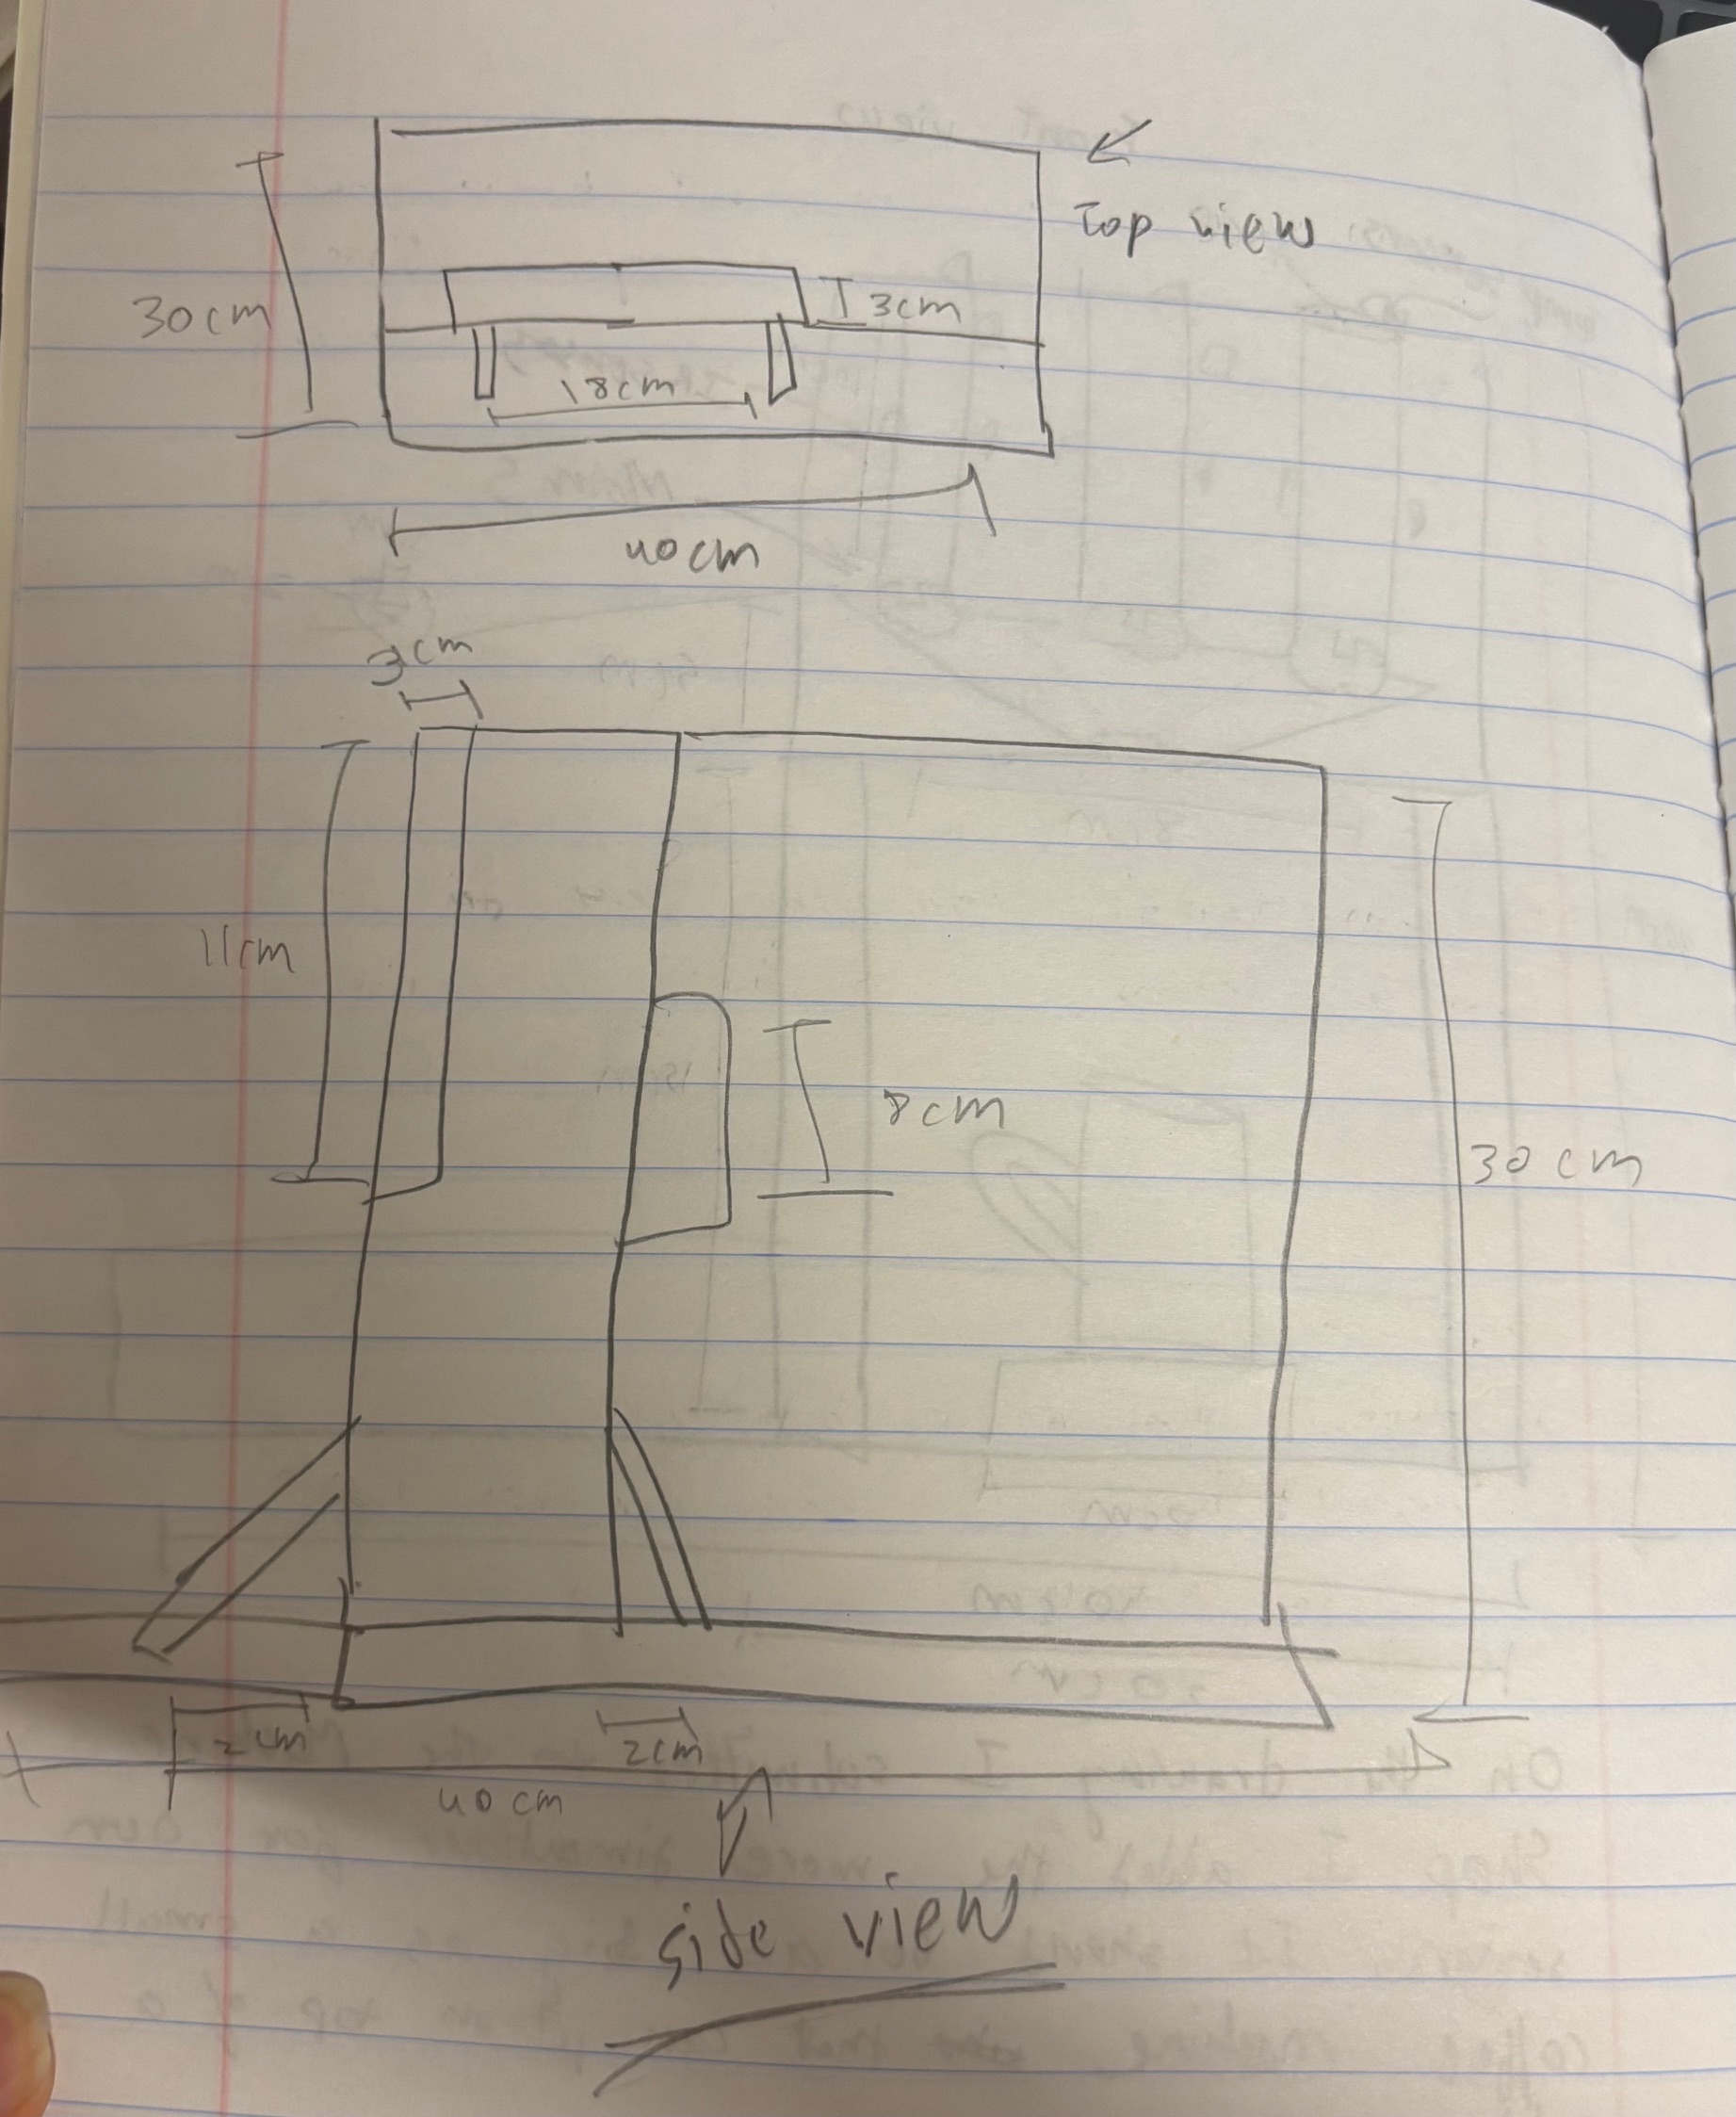 top view
30cm
3cm
18cm
40cm
3cm
11cm
8cm
30cm
2cm
2cm
40cm
side view